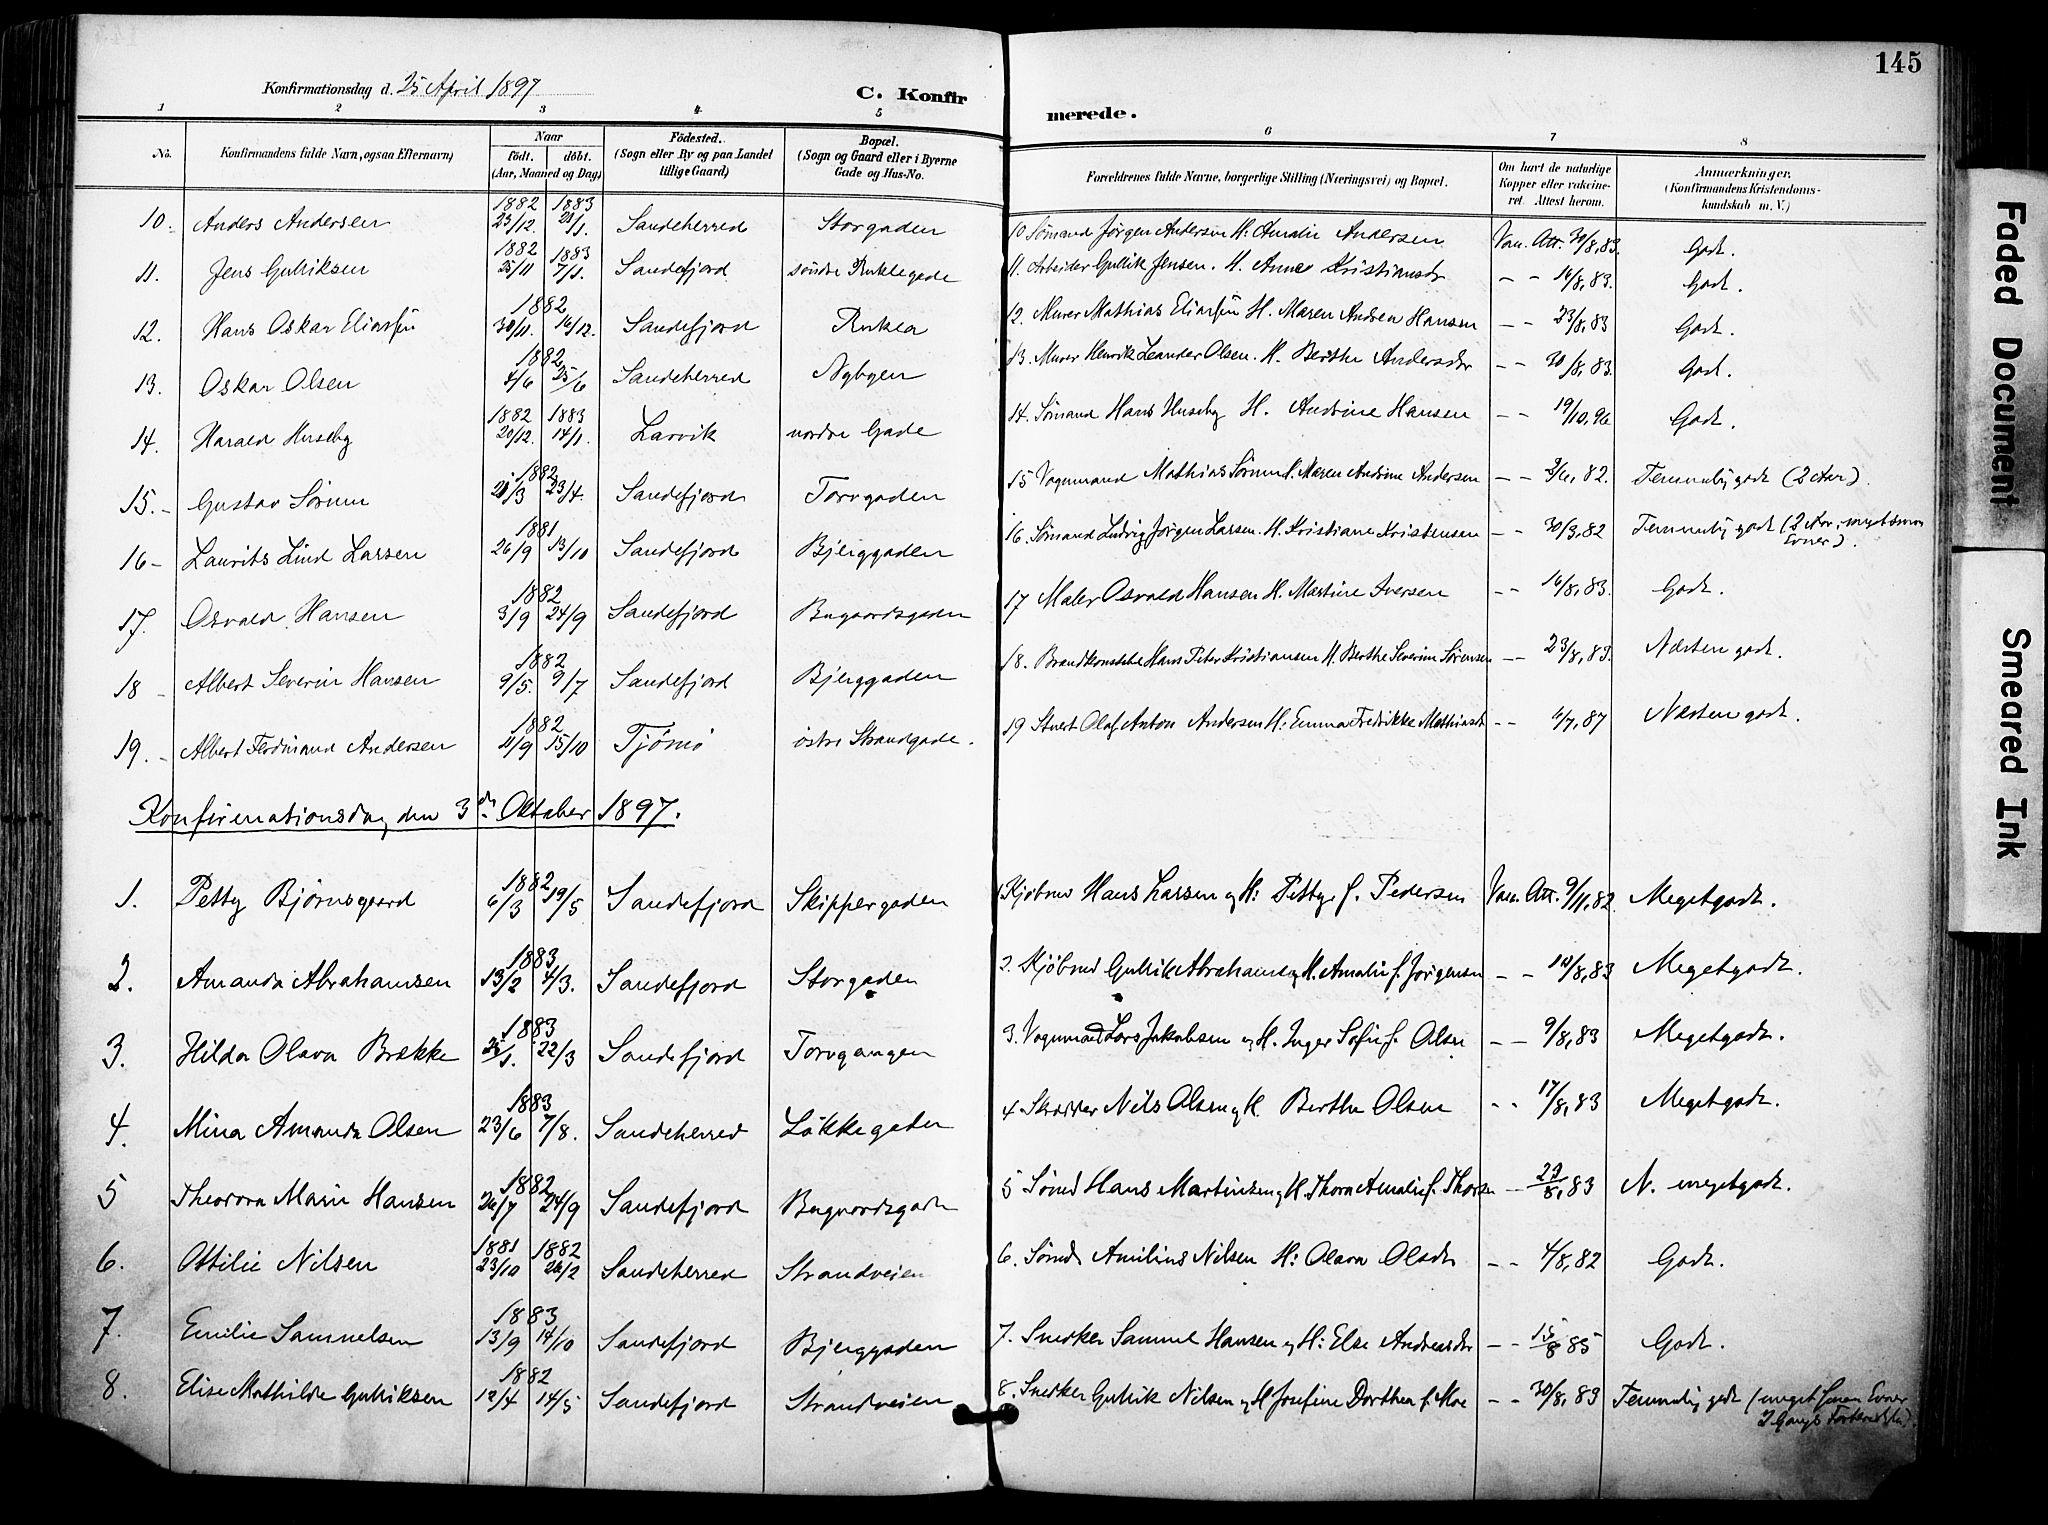 145
Konfirmationsdag d. 25 April 1897
C. Konfir
merede.
1 2 3 4 5 6 7 8
No.
Konfirmandens fulde Navn, ogsaa Efternavn)
Naar
födt. döbt.
(Aar, Maaned og Dag)
Födested.
(Sogn eller By og paa Landet
tillige Gaard)
Bopæl.
(Sogn og Gaard eller i Byerne
Gade og Hus-No.
Forældrenes fulde Navne, borgerlige Stilling (Næringsvei) og Bopæl.
Om havt de naturlige
Kopper eller vakcine-
ret. Attest herom.
Anmærkninger.
(Konfirmandens Kristendoms-
kundskab m. V.)
10. Anders Andersen 1882 23/12. 1883 /1. Sandeherred Storgaden 10 Sömand Jörgen Andersen H. Amalie Andersen Vac. Att. 30/8,83. Godt.
11. Jens Gulriksen 1882 25/11 1883 7/1. Sandefjord söndre Gade 11. Arbeider Gullik Jensen. H. Anne Kristiansdr - - 16/8,83. Godt.
12. Hans Oskar Eliassen 1882 30/11. 16/12. Sandefjord 12. Murer Mathias Eliassen H. Maren Andrea Hansen - - 23/8,83 Godt.
13. Oskar Olsen 1882 4/6 25/6 Sandeherred Nybyen 13. Murer Henrik Leander Olsen. H. Berthe Andersdr - - 30/8,83. Godt.
14. Harald Huseby 1882 20/12. 1883 14/1. Larvik nordre Gade 14. Sömand Hans Huseby H. Andrine Hansen - - 19/10,96 Godt.
15. - Gustav Sörum 1882 /3 23/4. Sandefjord Torvgaden 15 Vognmand Mathias Sörum H. Maren Andrine Andersen - - /6, 82. Temmelig godt (2 Aar).
16 - Laurits Lind Larsen 1881 26/9 13/10 Sandefjord Bjerggaden 16. Sömand Ludvig Jörgen Larsen. H. Kristiane Kristensen - - 30/3,82 Temmelig godt (2 Aar, meget smaa
Evner).
17. Osvald Hansen 1882 3/9 24/9 Sandefjord Bugaardsgaden 17 Maler Osvald Hansen H. Martine Iversen - - 16/8,83. Godt.
18 - Albert Severin Hansen 1882 9/5. 9/7 Sandefjord Bjerggaden 18. Brandkonstabel Hans Peter Kristiansen H. Berthe Severine Sörensen - - 23/8,83. Næsten godt.
19. - Albert Ferdinand Andersen 1882 /9 15/10 Tjömö östre Strandgade. 19 Stuert Olaf Anton Andersen H: Emma Fredrikke Mathiasdr - - 6/7,87 Næsten godt.
Konfirmationsdag den 3die Oktober 1897.
1. Petty Björnsgaard 1882 6/3 19/5 Sandefjord Skippergaden 1. Kjöbmd Hans Larsen og H: Petty f. Pedersen Vac. Att. 9/11,82. Megetgodt.
2. Amanda Abrahamsen 1883 13/2 4/3. Sandefjord Storgaden 2. Kjöbmd Gulrik Abrahamsen og H. Amalie f. Jörgensen - - /8,83 Megetgodt.
3. Hilda Olava Brække 1883 /1. 22/3 Sandefjord Torvgangen 3. Vognmand Lars Jakobsen og H. Inger Sofie f. Olsen - - 9/8,83 Megetgodt.
4. Mina Amanda Olsen 1883 23/6 7/8. Sandeherred Lökkegaden 4 Skrædder Nils Olsen og H. Berthe Olsen - - 17/8,83 Megetgodt.
5 Theodora Marie Hansen 1882 26/7 24/9 Sandefjord Bugaardsgaden 5 Sömd Hans Martinsen og H. Thora Amalie f. Thorsen - - 23/8,83 N. megetgodt.
6. Ottilie Nilsen 1881 23/10 1882 26/2 Sandeherred Strandveien 6. Sömd Amilius Nilsen H: Olava Olsdr - - 4/8,82 Godt.
7. Emilie Samuelsen 1883 13/9 14/10 Sandefjord Bjerggaden 7. Snedker Samuel Hansen og H: Else Andreasdr - - 15/8 85 Godt.
8. Elise Mathilde Gulriksen 1882 12/4 14/5 Sandefjord Strandveien 8. Snedker Gulrik Nilsen og H Josefine Dorthea f. Moe - - 30/8,83 Temmelig godt (meget smaa Evner
2 Gangs Forberedelse)
Faded Document
Smeared Ink